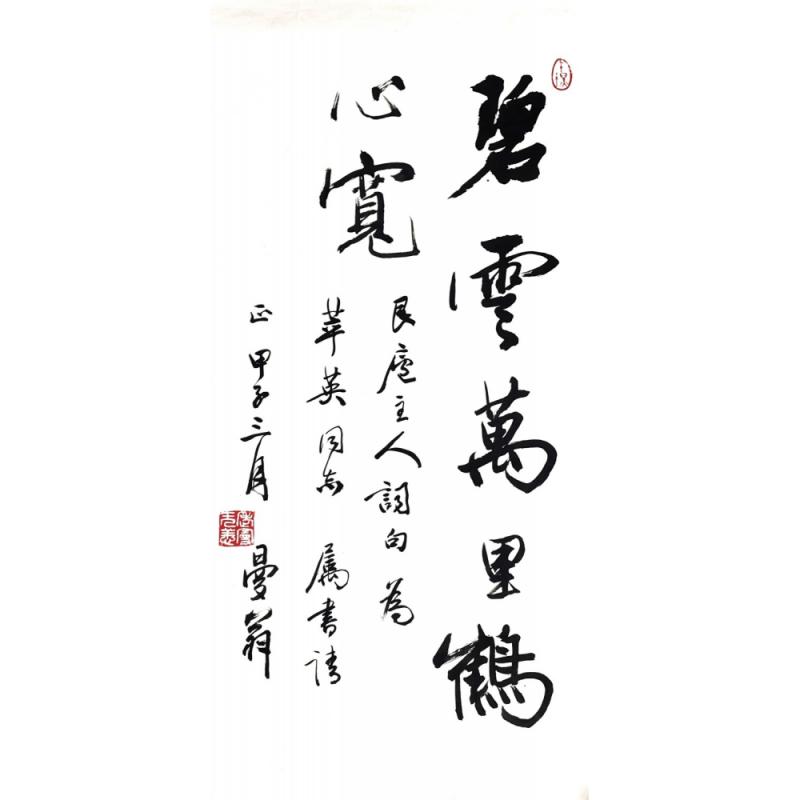 碧雲萬里鶴
心寬
艮廬主人詞句為
苹英同志 属書請
正 甲子三月
曼翁